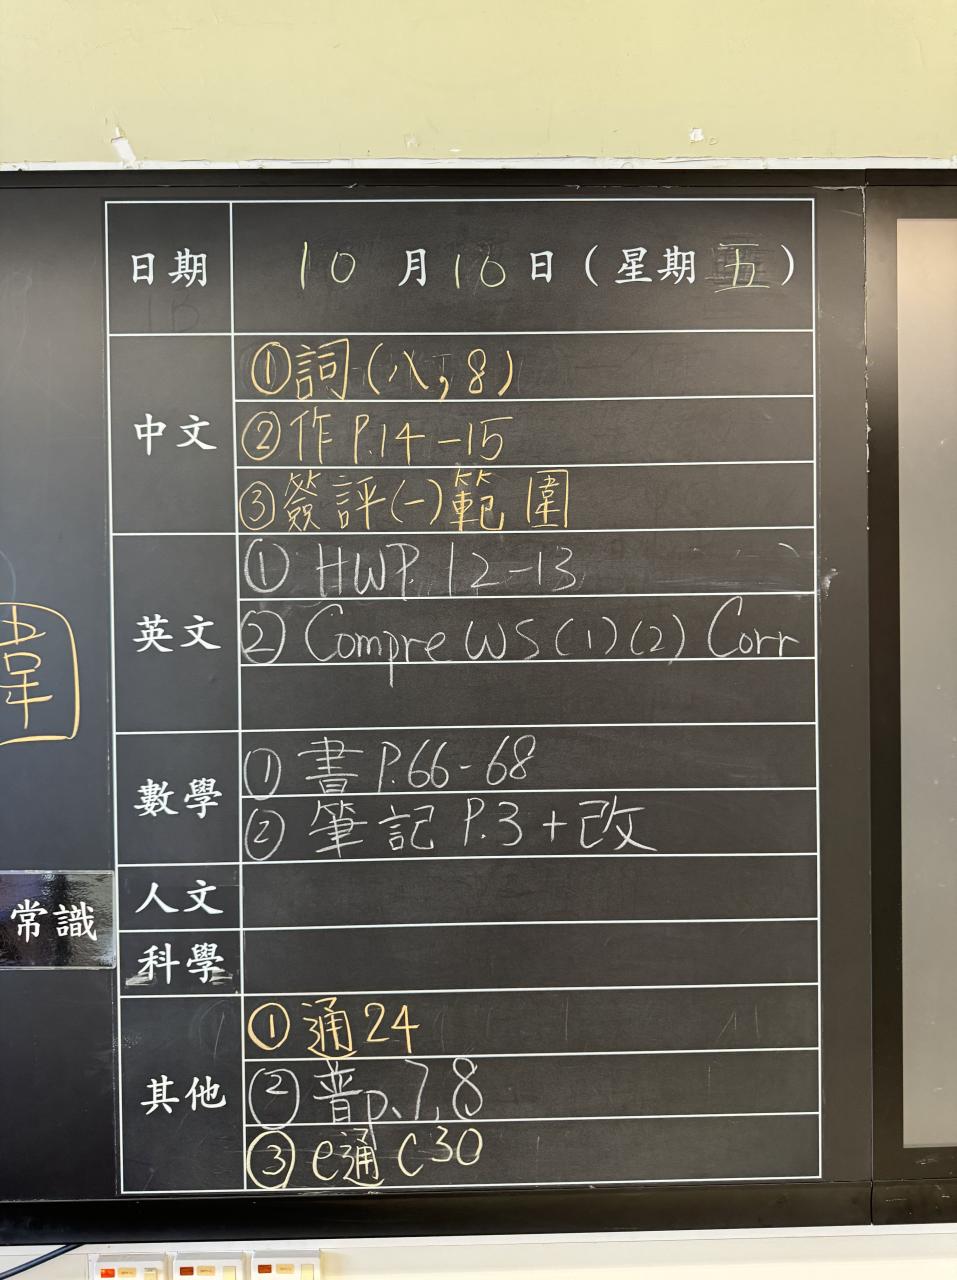 日期 10 月 10 日 ( 星期 五 )
中文
①詞(八,8)
②作 P.14-15
③簽評(一)範圍
英文
① HWP. 12-13
② Compre WS (1)(2) Corr
數學
① 書 P.66-68
② 筆記 P.3+改
人文
常識
科學
其他
① 通24
② 普p.7,8
③ e通 c30